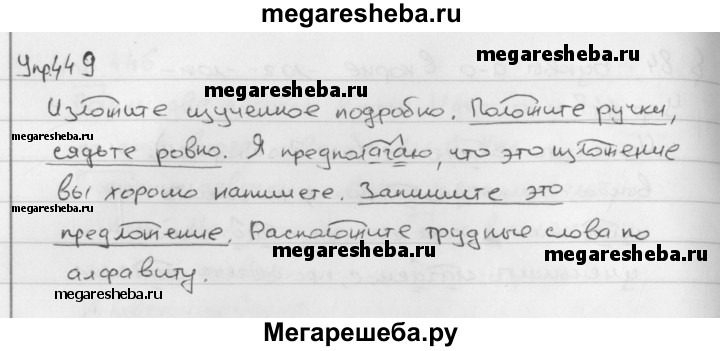 megaresheba.ru
megaresheba.ru
Упр.449
megaresheba.ru
Изложите изученное подробно. Положите ручки,
megaresheba.ru
сядьте ровно. Я предполагаю, что это изложение
вы хорошо напишете. Запишите это
megaresheba.ru
предложение. Расположите трудные слова по
megaresheba.ru
алфавиту.
megaresheba.ru
Мегарешеба.ру